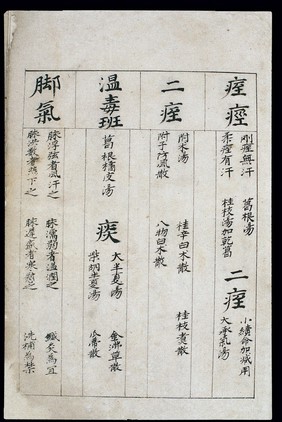 痓痙
剛痓無汗
葛根湯
柔痓有汗
桂枝湯加乾葛
二痓
小續命加減用
大承氣湯
二痓
附朮湯
桂辛白朮散
桂枝煮散
附子防風散
八物白朮散
溫毒班
葛根橘皮湯
痰
大半夏湯
金沸草散
柴胡半夏湯
瓜蒂散
脚氣
脉浮弦者風汗之
脉濡弱者溫之
纖灸為宜
脉洪數者下之
脉遲者寒熱之
洗補為禁